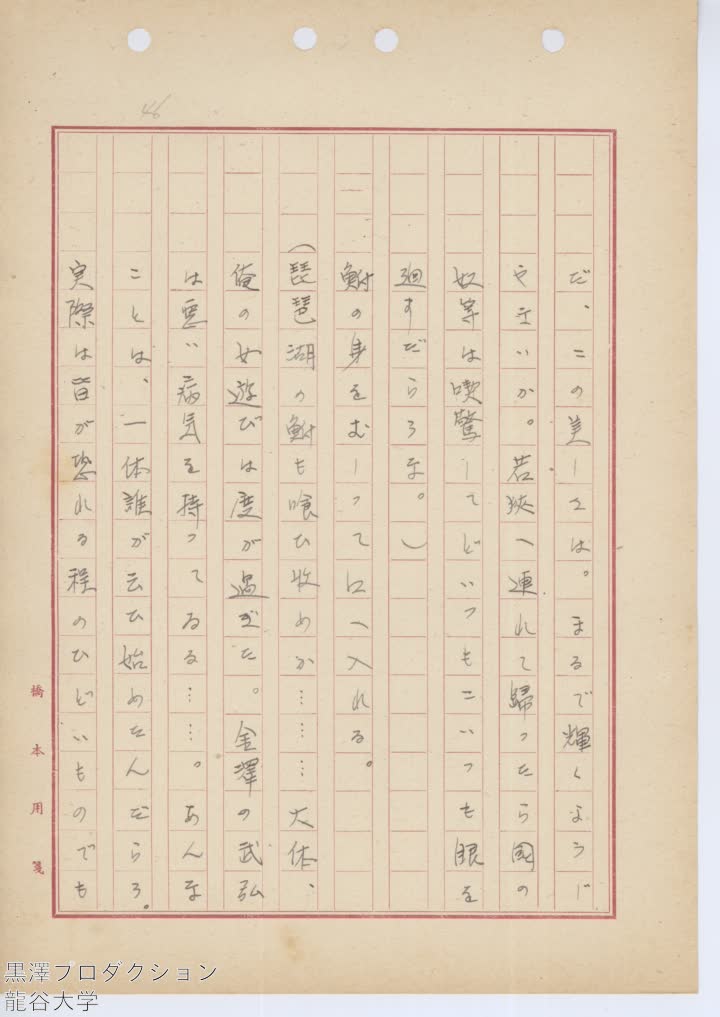 46
だ、この美しさは。まるで輝くようじ
やないか。若狭へ連れて歸つたら國の
奴等は喫驚してどいつもこいつも眼を
廻すだらうな。）
鮒の身をむしつて口へ入れる。
（琵琶湖の鮒も喰ひ收めか……大体、
俺の女遊びは度が過ぎた。金澤の武弘
は悪い病気を持つてゐる……。あんな
ことは、一体誰が云ひ始めたんだらう。
実際は皆が恐れる程のひどいものでも
橋本用箋
黒澤プロダクション
龍谷大学